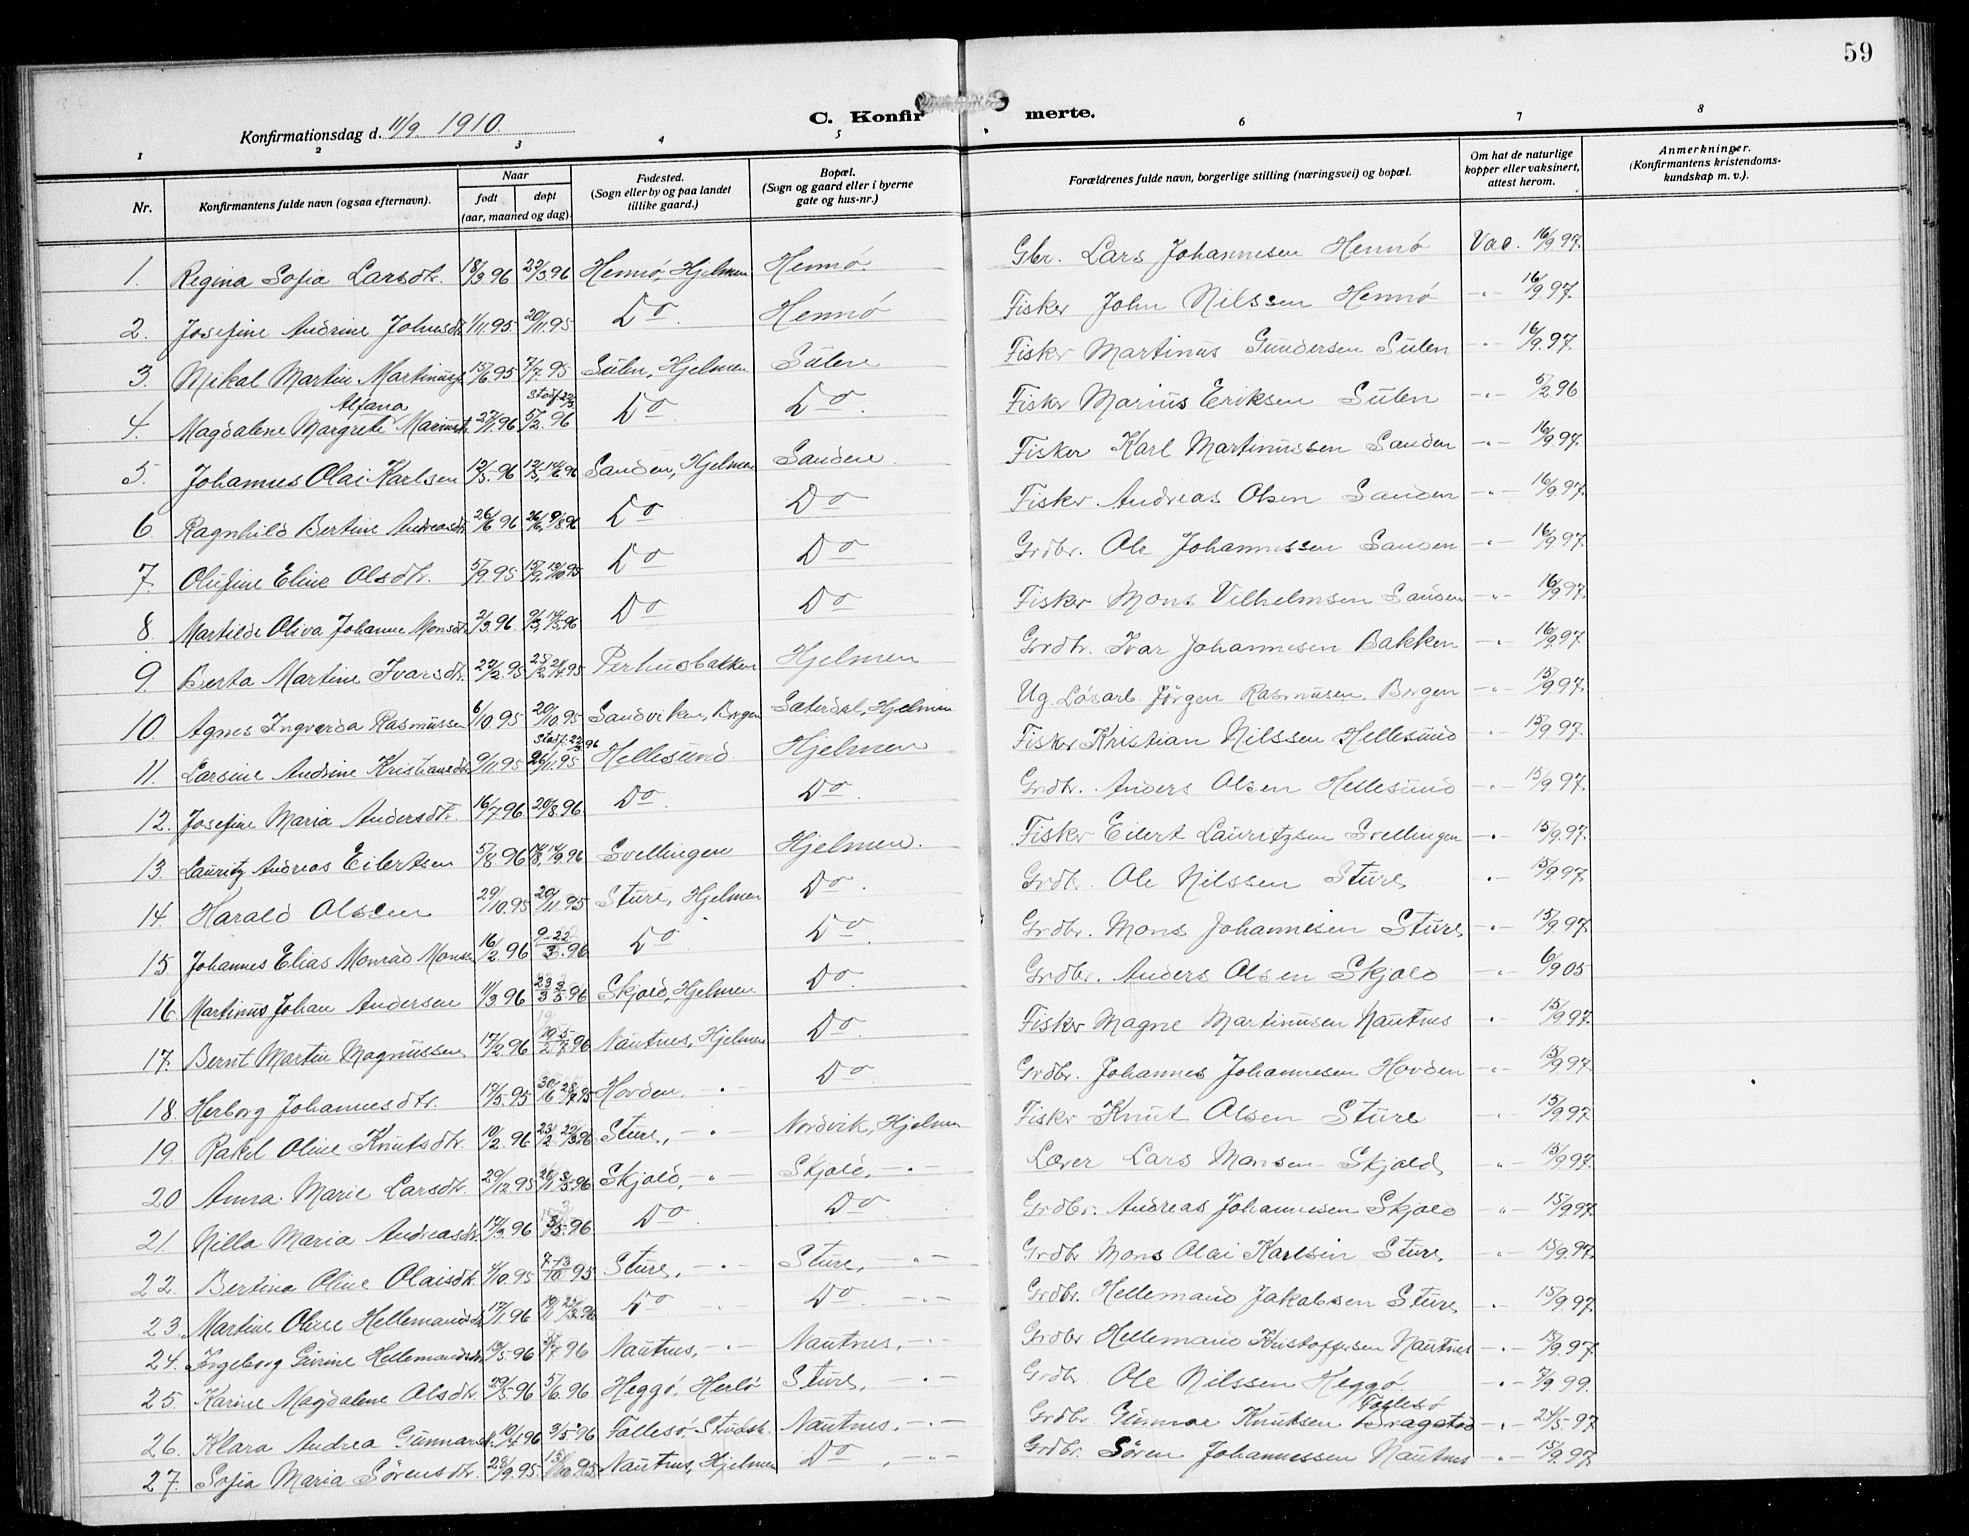 59
Konfirmationsdag d. 11/9 1910.
C. Konfirmerte.
1 2 3 4 5 6 7 8
Nr. Konfirmantens fulde navn (ogsaa efternavn). Naar født døpt (aar, maaned og dag). Fødested. (Sogn eller by og paa landet tillike gaard.) Bopæl. (Sogn og gaard eller i byerne gate og hus-nr.) Forældrenes fulde navn, borgerlige stilling (næringsvei) og bopæl. Om hat de naturlige kopper eller vaksinert, attest herom. Anmerkninger. (Konfirmantens kristendomskundskap m. v.).
1. Regina Sofia Larsdtr. 18/3 96 22/3 96 Hennø, Hjelmen Hennø. Gbr. Lars Johannesen Hennø Vac. 16/9 97.
2. Josefine Andrine Johnsdtr. 1/11 95 20/11 95 Do Hennø Fisker John Nilssen Hennø -"- 16/9 97.
3. Mikal Martin Martinus 15/6 95 7/7 95 Sulen, Hjelmen Sulen Fisker Martinus Gundersen Sulen -"- 16/9 97.
4. Magdalene Margrete Alfana Mariusdtr 27/1 96 5/2 96 Do Do Fisker Marius Eriksen Sulen -"- 5/2 96
5. Johannes Olai Karlsen 12/5 96 Sanden, Hjelmen Sanden Fisker Karl Martinussen Sanden -"- 16/9 97
6. Ragnhild Bertine Andreasdtr. 26/6 96 26/6 9/8 96 Do Do Fisker Andreas Olsen Sanden -"- 16/9 97.
7. Olufine Eline Olsdtr. 5/9 95 15/9 13/10 95 Do Do Grdbr. Ole Johannessen Sanden -"- 16/9 97.
8. Martilde Oliva Johanne Monsdtr. 2/3 96 Do Do Fisker Mons Vilhelmsen Sanden -"- 16/9 97.
9. Berta Martine Ivarsdtr. 22/2 95 Perhusbakken Hjelmen Grdbr. Ivar Johannesen Bakken -"- 16/9 97.
10. Agnes Ingvarda Rasmussen 6/10 95 20/10 95 Sandviken, Bergen Sæterdal, Hjelmen Ug. Løsarb. Jørgen Rasmusen, Bergen -"- 15/9 97.
11. Larsine Andrine Kristiansdtr 9/11 95 26/11 95 Hellesund. Hjelmen Fisker Kristian Nilssen Hellesund -"- 15/9 97.
12. Josefine Maria Andersdtr. 16/7 96 20/8 96 Do Do Grdbr. Anders Olsen Hellesund -"- 15/9 97.
13. Lauritz Andreas Eilertsen 5/8 96 Svellingen Hjelmen. Fisker Eilert Lauritzsen Svellingen -"- 15/9 97.
14. Harald Olsen 29/10 95 20/11 95 Sture, Hjelmen Do. Grdbr. Ole Nilssen Sture "- 15/9 97.
15 Johannes Elias Monrad Monsen 16/2 96 9-22/3 96 Do Do Grdbr. Mons Johannesen Sture -"- 15/9 97.
16 Martinus Johan Andersen 11/3 96 23/3 3/5 96 Skjold, Hjelmen Do. Grdbr. Anders Olsen Skjold -"- 6/9 05
17. Bernt Martin Magnussen 17/2 96 Nautnes, Hjelmen Do Fisker Magne Martinusen Nautnes "- 15/9 97.
18. Herborg Johannesdtr. 17/5 95 Hovden. -"- Do Grdbr. Johannes Johannesen Hovden -"- 15/9 97.
19. Rakel Oline Knutsdtr. 10/2 96 23/2 22/3 96 Sture, -"- Nordvik, Hjelmen Fisker Knut Olsen Sture "- 15/9 97.
20 Anna Marie Larsdtr. 29/12 95 26/1 3/5 96 Skjold, -"- Skjold, -"- Lærer Lars Monsen Skjold "- 15/9 97.
21. Nilla Maria Andreasdtr. 17/3 96 3/5 96 Do Do Grdbr. Andreas Johannesen Skjold "- 15/9 97.
22. Bertina Oline Olaisdtr. 1/10 95 7-13/10 95 Sture, -"- Sture, "- Grdbr Mons Olai Karlsen Sture "- 15/9 97.
23. Martine Oline Hellemandsdtr 17/1 96 Do Do -"- Grdbr. Hellemand Jakobsen Sture "- 15/9 97.
24. Ingeborg Gurine Hellemandsdtr 19/5 96 Nautnes, -"- Nautnes, -"- Grdbr Hellemand Kristoffersen Nautnes -"- 15/9 97
25. Karine Magdalene Olsdtr. 29/5 96 5/6 96 Heggø, Herlø Sture, -"- Grdbr. Ole Nilssen Heggø. -"- 7/9 99.
26. Klara Andrea Gunnarsdtr. 10/4 96 3/5 96 Follesø, Nautnes, -"- Grdbr. Gunnar Knutsen Follesø -"- 24/5 97
27. Sofia Maria Sørensdtr. 28/9 95. Nautnes, Hjelmen Do, -"- Grdbr. Søren Johannessen Nautnes -"- 15/9 97.